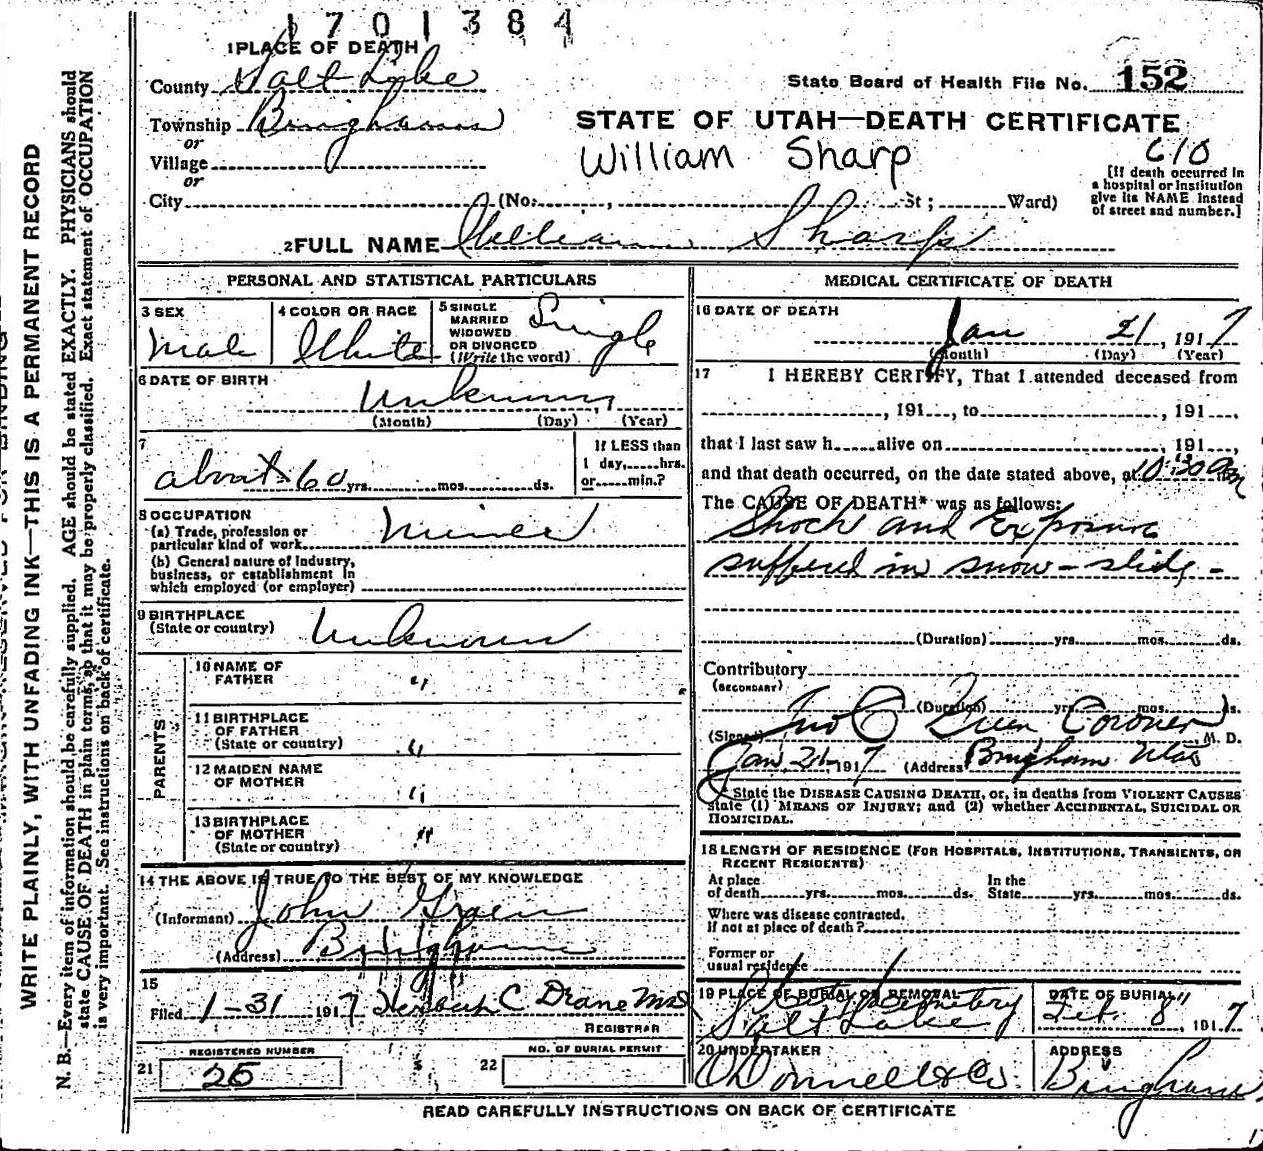 1701384
1 PLACE OF DEATH
County Salt Lake
State Board of Health File No. 152
Township Bingham
or
STATE OF UTAH—DEATH CERTIFICATE
Village
William Sharp
610
or
City (No. , St; Ward)
[If death occurred in
a hospital or institution
give its NAME instead
of street and number.]
2 FULL NAME William Sharp
PERSONAL AND STATISTICAL PARTICULARS
3 SEX
Male
4 COLOR OR RACE
White
5 SINGLE
MARRIED
WIDOWED
OR DIVORCED
(Write the word)
Single
6 DATE OF BIRTH
Unknown
(Month) (Day) (Year)
7
about 60 yrs. mos. ds.
If LESS than
1 day, hrs.
or min.?
8 OCCUPATION
(a) Trade, profession or
particular kind of work Miner
(b) General nature of Industry,
business, or establishment in
which employed (or employer)
9 BIRTHPLACE
(State or country) Unknown
PARENTS
10 NAME OF
FATHER "
11 BIRTHPLACE
OF FATHER
(State or country) "
12 MAIDEN NAME
OF MOTHER "
13 BIRTHPLACE
OF MOTHER
(State or country) "
14 THE ABOVE IS TRUE TO THE BEST OF MY KNOWLEDGE
(Informant) John Green
(Address) Bingham
15
Filed 1-31 1917 C Drane MD
REGISTRAR
REGISTERED NUMBER
21 25
NO. OF BURIAL PERMIT
22
MEDICAL CERTIFICATE OF DEATH
16 DATE OF DEATH
Jan 21, 1917
(Month) (Day) (Year)
17 I HEREBY CERTIFY, That I attended deceased from
, 191 , to , 191 .
that I last saw h alive on 191 ,
and that death occurred, on the date stated above, at 10:30 am
The CAUSE OF DEATH* was as follows:
Shock and Exposure
suffered in snow-slide -
(Duration) yrs. mos. ds.
Contributory
(SECONDARY)
(Duration) yrs. mos. ds.
(Signed) Jno C Green Coroner M. D.
Jan, 21 1917 (Address) Bingham Utah
*State the DISEASE CAUSING DEATH, or, in deaths from VIOLENT CAUSES
state (1) MEANS OF INJURY; and (2) whether ACCIDENTAL, SUICIDAL OR
HOMICIDAL.
18 LENGTH OF RESIDENCE (FOR HOSPITALS, INSTITUTIONS, TRANSIENTS, OR
RECENT RESIDENTS)
At place
of death yrs. mos. ds.
In the
State yrs. mos. ds.
Where was disease contracted.
If not at place of death?
Former or
usual residence
19 PLACE OF BURIAL OR REMOVAL
Cemetery
Salt Lake
DATE OF BURIAL
Feb. 8", 1917
20 UNDERTAKER
O'Donnell & Co.
ADDRESS
Bingham
READ CAREFULLY INSTRUCTIONS ON BACK OF CERTIFICATE
WRITE PLAINLY, WITH UNFADING INK—THIS IS A PERMANENT RECORD
N. B.—Every item of information should be carefully supplied. AGE should be stated EXACTLY. PHYSICIANS should
state CAUSE OF DEATH in plain terms, so that it may be properly classified. Exact statement of OCCUPATION
is very important. See instructions on back of certificate.